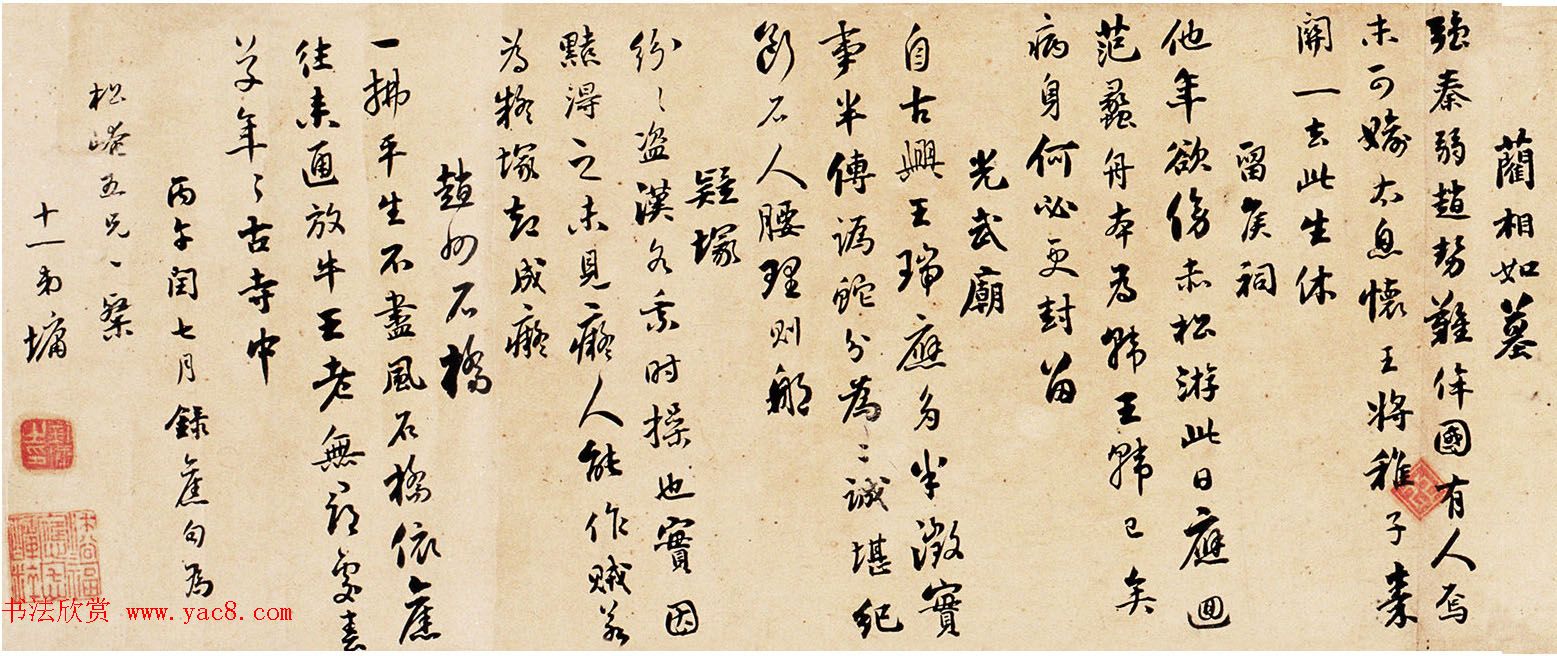 藺相如墓
強秦弱趙勢難侔國有人焉
未可媮太息懷王將稚子秦
關一去此生休
留侯祠
他年欲傍赤松游此日應迴
范蠡舟本為韓王韓已矣
病身何必更封留
光武廟
自古興王瑞應多半徵實
事半傳譌蛇分為二誠堪紀
斷石人腰理則那
疑塚
紛〻盜漢各乘時操也實因
黠得之未見癡人能作賊若
為疑塚却成癡
趙州石橋
一拂平生不盡風石橋依舊
往來通放牛王老無尋處春
草年〻古寺中
丙午閏七月錄舊句為
松崦五兄一粲
十一弟墉
书法欣赏 www.yac8.com